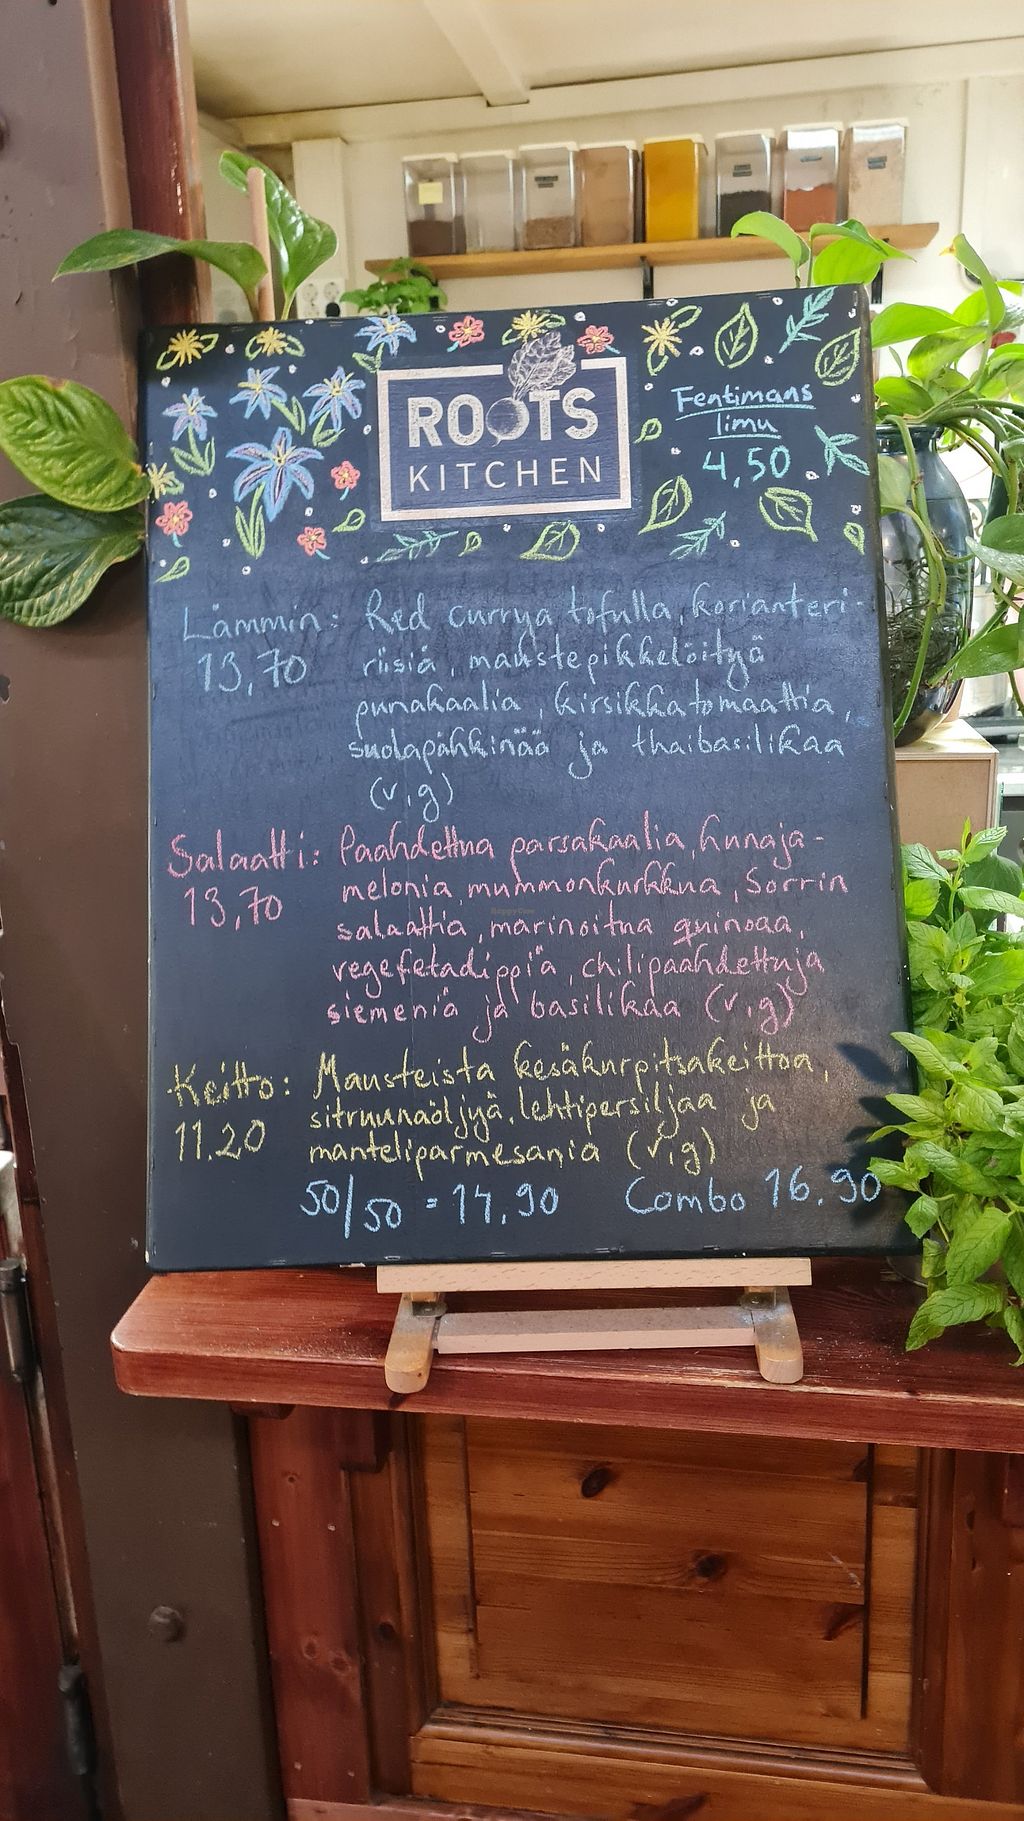 ROOTS
KITCHEN
Fentimans
limu
4,50
Lämmin: Red currya tofulla, korianteri-
13,70 riisiä, maustepikkelöityä
punakaalia, kirsikkatomaattia,
suolapähkinää ja thaibasilikaa
(v,g)
Salaatti: Paahdettua parsakaalia, hunaja-
13,70 melonia, mummonkurkkua, Sorrin
salaattia, marinoitua quinoaa,
vegefetadippiä, chilipaahdettuja
siemeniä ja basilikaa (v,g)
Keitto: Mausteista kesäkurpitsakeittoa,
11.20 sitruunaöljyä, lehtipersiljaa ja
manteliparmesania (v,g)
50/50 = 14,90 Combo 16.90